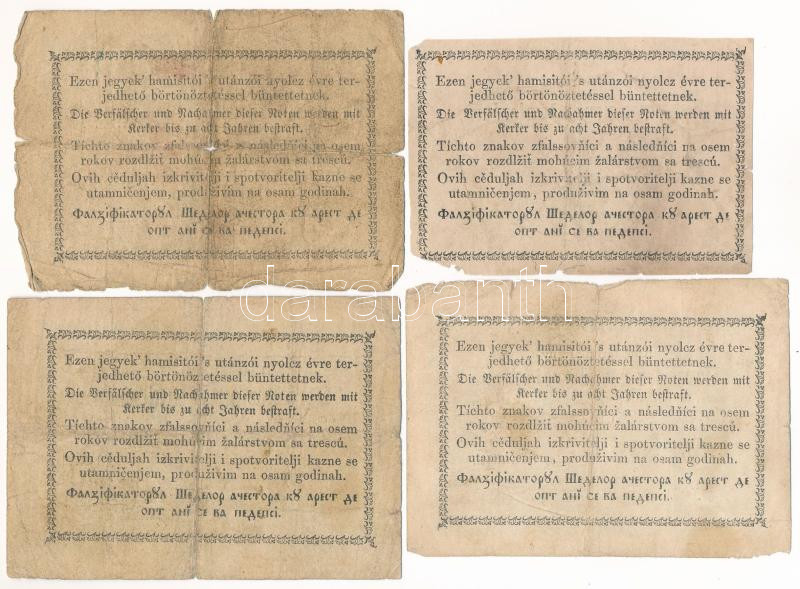 Ezen jegyek' hamisitói 's utánzói nyolcz évre ter-
jedhető börtönöztetéssel büntettetnek.
Die Verfälscher und Nachahmer dieser Noten werden mit
Kerker bis zu acht Jahren bestraft.
Tíchto znakov zfalssovňíci a následňíci na osem
rokov rozdlžit mohúcim žalárstvom sa trescú.
Ovih cěduljah izkrivitelji i spotvoritelji kazne se
utamničenjem, produživim na osam godinah.
Фалзіфікаторꙋл Шеделор ачестора кꙋ арест де
опт анї се ва педепсі.
Ezen jegyek' hamisitói 's utánzói nyolcz évre ter-
jedhető börtönöztetéssel büntettetnek.
Die Verfälscher und Nachahmer dieser Noten werden mit
Kerker bis zu acht Jahren bestraft.
Tíchto znakov zfalssovňíci a následňíci na osem
rokov rozdlžit mohúcim žalárstvom sa trescú.
Ovih cěduljah izkrivitelji i spotvoritelji kazne se
utamničenjem, produživim na osam godinah.
Фалзіфікаторꙋл Шеделор ачестора кꙋ арест де
опт анї се ва педепсі.
darabanth
Ezen jegyek' hamisitói 's utánzói nyolcz évre ter-
jedhető börtönöztetéssel büntettetnek.
Die Verfälscher und Nachahmer dieser Noten werden mit
Kerker bis zu acht Jahren bestraft.
Tíchto znakov zfalssovňíci a následňíci na osem
rokov rozdlžit mohúcim žalárstvom sa trescú.
Ovih cěduljah izkrivitelji i spotvoritelji kazne se
utamničenjem, produživim na osam godinah.
Фалзіфікаторꙋл Шеделор ачестора кꙋ арест де
опт анї се ва педепсі.
Ezen jegyek' hamisitói 's utánzói nyolcz évre ter-
jedhető börtönöztetéssel büntettetnek.
Die Verfälscher und Nachahmer dieser Noten werden mit
Kerker bis zu acht Jahren bestraft.
Tíchto znakov zfalssovňíci a následňíci na osem
rokov rozdlžit mohúcim žalárstvom sa trescú.
Ovih cěduljah izkrivitelji i spotvoritelji kazne se
utamničenjem, produživim na osam godinah.
Фалзіфікаторꙋл Шеделор ачестора кꙋ арест де
опт анї се ва педепсі.